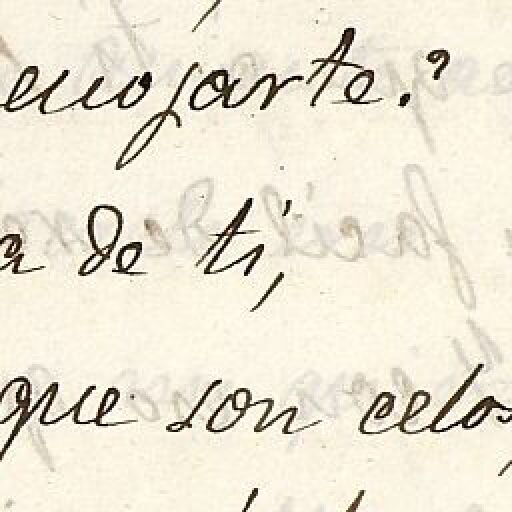 enojarte?
a de tí,
que son celos,